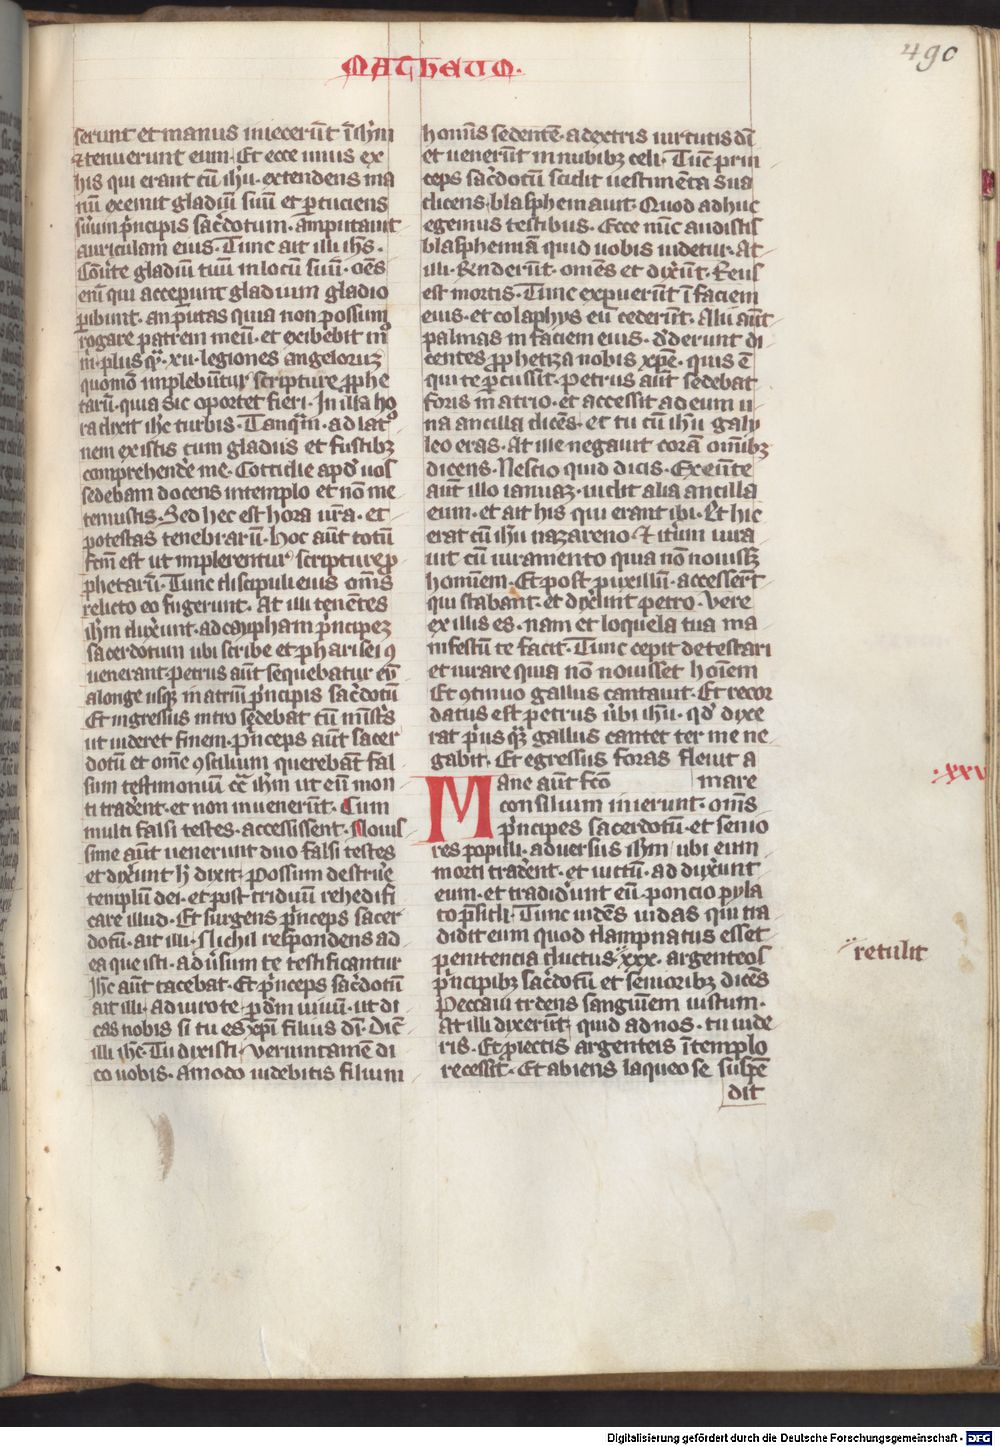 MATHEUM.
490
serunt et manus iniecerūt ī ihm̄
⁊ tenuerunt eum. Et ecce unus ex
his qui erant cū ih̄u. extendens ma
nū exemit gladiū suū et percuciens
suum p̄ncipis sac̄dotum. amputauit
auriculam eius. Tunc ait illi ih̄s.
Cōu̅te gladiū tuū in locū suū. oēs
eni̅ qui acceꝑunt gladium gladio
ꝑibunt. an putas quia non possum
rogare patrem meū. et exibebit m̊
m̊ plus qͣ̄. xii. legiones angeloruꝫ
quomō implebūtur scripture ꝓphe
tarū. quia sic oportet fieri. In illa ho
ra dixit ih̄c turbis. Tanqͣ̄m. ad lat̊
nem existis cum gladiis et fustibꝫ
comprehendēre me. Cottidie apd̄ uos
sedebam docens in templo et nō me
tenuistis. Sed hec est hora ur̄a. et
potestas tenebrarū. Hoc aūt totū
fcm̄ est ut implerentur scripture ꝓ
phetarū. Tunc discipuli eius om̄s
relicto eo fugerunt. At illi tenētes
ihm̄ dux̄unt. ad caypham p̄ncipeꝫ
sacerdotum ubi scribe et pharisei ꝯ
uenerant. Petrus aūt sequebatur eū
a longe usqꝫ in atriū p̄ncipis sac̄dotū
Et ingressus intro sedebat cū minist̄s
ut uideret finem. P̄nceps aūt sacer
dotū et om̄e ꝯsilium querebāt fal
sum testimoniū ct̄ ihm̄ ut eū mor
ti trad̄ent. et non inuenerūt. Cum
multi falsi testes. accessissent. Nouis
sime aūt uenerunt duo falsi testes
et dix̄unt h̄ dixit. Possum destrūe
templū dei. et post triduū reedifi
care illud. Et surgens p̄nceps sacer
dotū. ait illi. Nichil respondens ad
ea que isti. aduersum te testificantur
Ih̄c aūt tacebat. Et p̄nceps sac̄dotū
ait illi. Adiuro te. p̄ dm̄ uiuū. ut di
cas nobis si tu es xp̄c filius dī. Dic̄
illi ih̄c. Tu dixisti. Veruntamē di
co uobis. Amodo uidebitis filium
hominis sedentē. a dextris uirtutis dī
et uenerūt in nubibꝫ celi. Tūc prin
ceps sac̄dotū scidit uestimēta sua
dicens. blasphemauit. Quod adhuc
egemus testibus. Ecce nūc audistis
blasphemiā quid uobis uidetur. At
illi. Rn̄derūt. omēs et dix̄ūt. Reus
est mortis. Tunc expuerūt ī faciem
eius. et colaphys eū cederūt. Alii aūt
palmas in faciem eius. dederunt di
centes ꝓphetiza nobis xp̄e. quis ē
qui te ꝑcussit. Petrus aūt sedebat
foris in atrio. et accessit ad eum u
na ancilla dicēs. et tu cū ih̄u galy
leo eras. At ille negauit corā omībꝫ
dicens. Nescio quid dicis. Exeūte
aūt illo ianuaꝫ. uidit alia ancilla
eum. et ait his qui erant ibi. Et hic
erat cū ih̄u nazareno. Et it̄um iura
uit cū iuramento quia nō nouissꝫ
hominem. Et post puxillū. accesser̄t
qui stabant. et dix̄unt petro. Vere
ex illis es. nam et loquela tua ma
nifestū te facit. Tunc cepit detestari
et iurare quia nō nouisset hoīem
Et ꝯtinuo gallus cantauit. Et recor
datus est petrus u̅bi ih̄u. qd̄ dixe
rat p̄us qͣ̄ꝫ gallus cantet ter me ne
gabit. Et egressus foras fleuit a
mare
Mane aūt fcō
consilium inierunt. om̄s
p̄ncipes sacerdotū. et senio
res populi. aduersus ihm̄ ubi eum
morti trad̄ent. et uictū. adduxerunt
eum. et tradid̄unt eū. poncio pyla
to p̄sidi. Tunc uidēs iudas qui tra
didit eum quod dampnatus esset
penitencia ductus. xxx. argenteos
p̄ncipibꝫ sac̄dotū et senioribꝫ dicēs
Peccaui tr̄dens sanguīem iustum.
At illi dixerūt quid ad nos. tu uide
ris. Et ꝓiectis argenteis ī templo
recessit. Et abiens laqueo se suspē
dit
.xxv
retulit
Digitalisierung gefördert durch die Deutsche Forschungsgemeinschaft - DFG